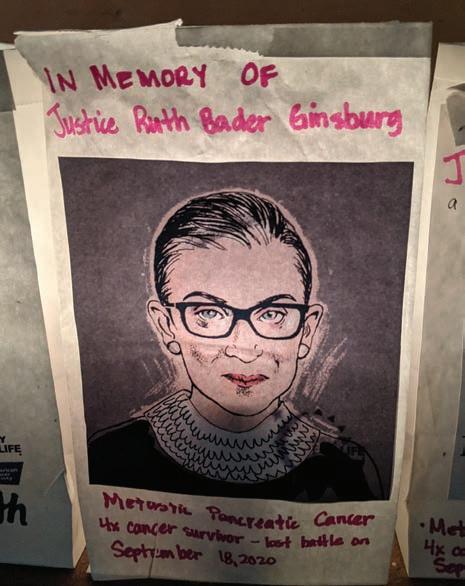 IN MEMORY OF
Justice Ruth Bader Ginsburg
LIFE
Metastic Pancreatic Cancer
4x cancer survivor - lost battle on
September 18, 2020
LIFE
th
J
a